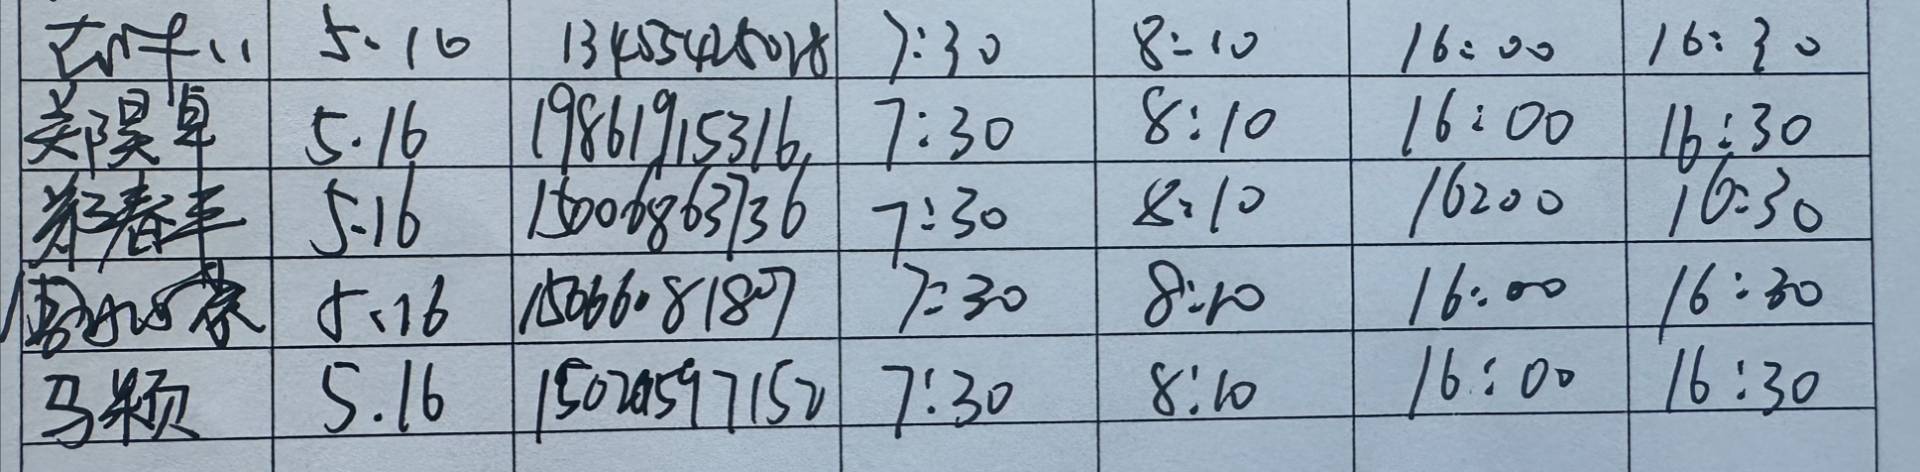 5.16 7:30 8:10 16:00 16:30
郑昊卓 5.16 19861915316 7:30 8:10 16:00 16:30
郑春丰 5.16 15006863736 7:30 8:10 16:00 16:30
5.16 15066081807 7:30 8:10 16:00 16:30
马颖 5.16 7:30 8:10 16:00 16:30